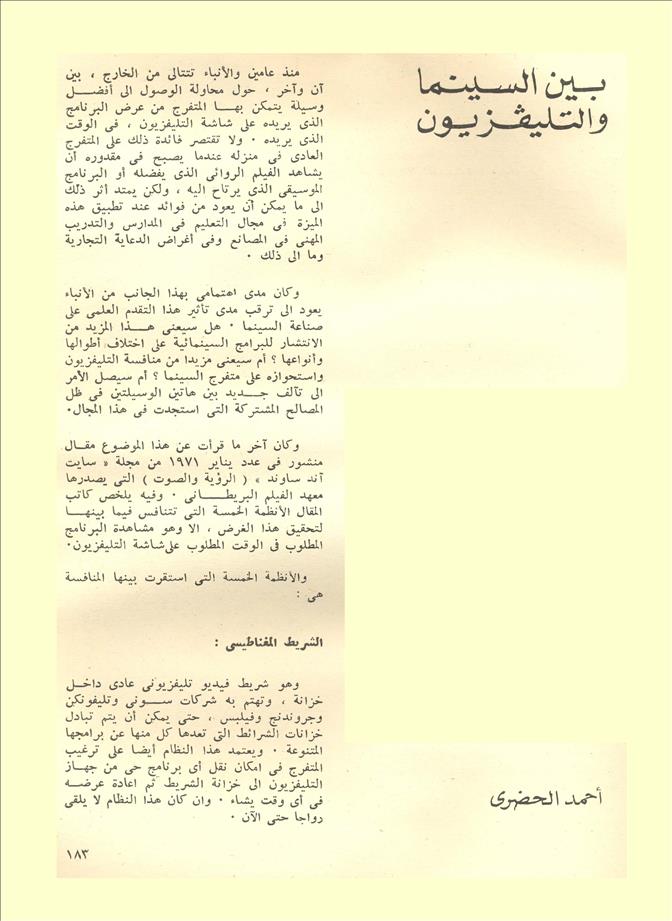 بين السينما
والتليڤزيون
منذ عامين والأنباء تتتالى من الخارج ، بين
آن وآخر ، حول محاولة الوصول الى أفضل
وسيلة يتمكن بها المتفرج من عرض البرنامج
الذى يريده على شاشة التليفزيون ، فى الوقت
الذى يريده ٠ ولا تقتصر فائدة ذلك على المتفرج
العادى فى منزله عندما يصبح فى مقدوره أن
يشاهد الفيلم الروائى الذى يفضله أو البرنامج
الموسيقى الذي يرتاح اليه ، ولكن يمتد أثر ذلك
الى ما يمكن أن يعود من فوائد عند تطبيق هذه
الميزة فى مجال التعليم فى المدارس والتدريب
المهنى فى المصانع وفى أغراض الدعاية التجارية
وما الى ذلك ٠
وكان مدى اهتمامى بهذا الجانب من الأنباء
يعود الى ترقب مدى تأثير هذا التقدم العلمى على
صناعة السينما ٠ هل سيعنى هذا المزيد من
الانتشار للبرامج السينمائية على اختلاف أطوالها
وأنواعها ؟ أم سيعنى مزيدا من منافسة التليفزيون
واستحوازه على متفرج السينما ؟ أم سيصل الأمر
الى تآلف جديد بين هاتين الوسيلتين فى ظل
المصالح المشتركة التى استجدت فى هذا المجال٠
وكان آخر ما قرأت عن هذا الموضوع مقال
منشور فى عدد يناير ١٩٧١ من مجلة « سايت
آند ساوند » ( الرؤية والصوت ) التى يصدرها
معهد الفيلم البريطانى ٠ وفيه يلخص كاتب
المقال الأنظمة الخمسة التى تتنافس فيما بينها
لتحقيق هذا الغرض ، الا وهو مشاهدة البرنامج
المطلوب فى الوقت المطلوب على شاشة التليفزيون٠
والأنظمة الخمسة التى استقرت بينها المنافسة
هى :
الشريط المغناطيسى :
وهو شريط فيديو تليفزيونى عادى داخل
خزانة ، وتهتم به شركات سونى وتليفونكن
وجروندنج وفيلبس ، حتى يمكن أن يتم تبادل
خزانات الشرائط التى تعدها كل منها عن برامجها
المتنوعة ٠ ويعتمد هذا النظام أيضا على ترغيب
المتفرج فى امكان نقل أى برنامج حى من جهاز
التليفزيون الى خزانة الشريط ثم اعادة عرضه
فى أى وقت يشاء ٠ وان كان هذا النظام لا يلقى
رواجا حتى الآن ٠
أحمد الحضرى
١٨٣